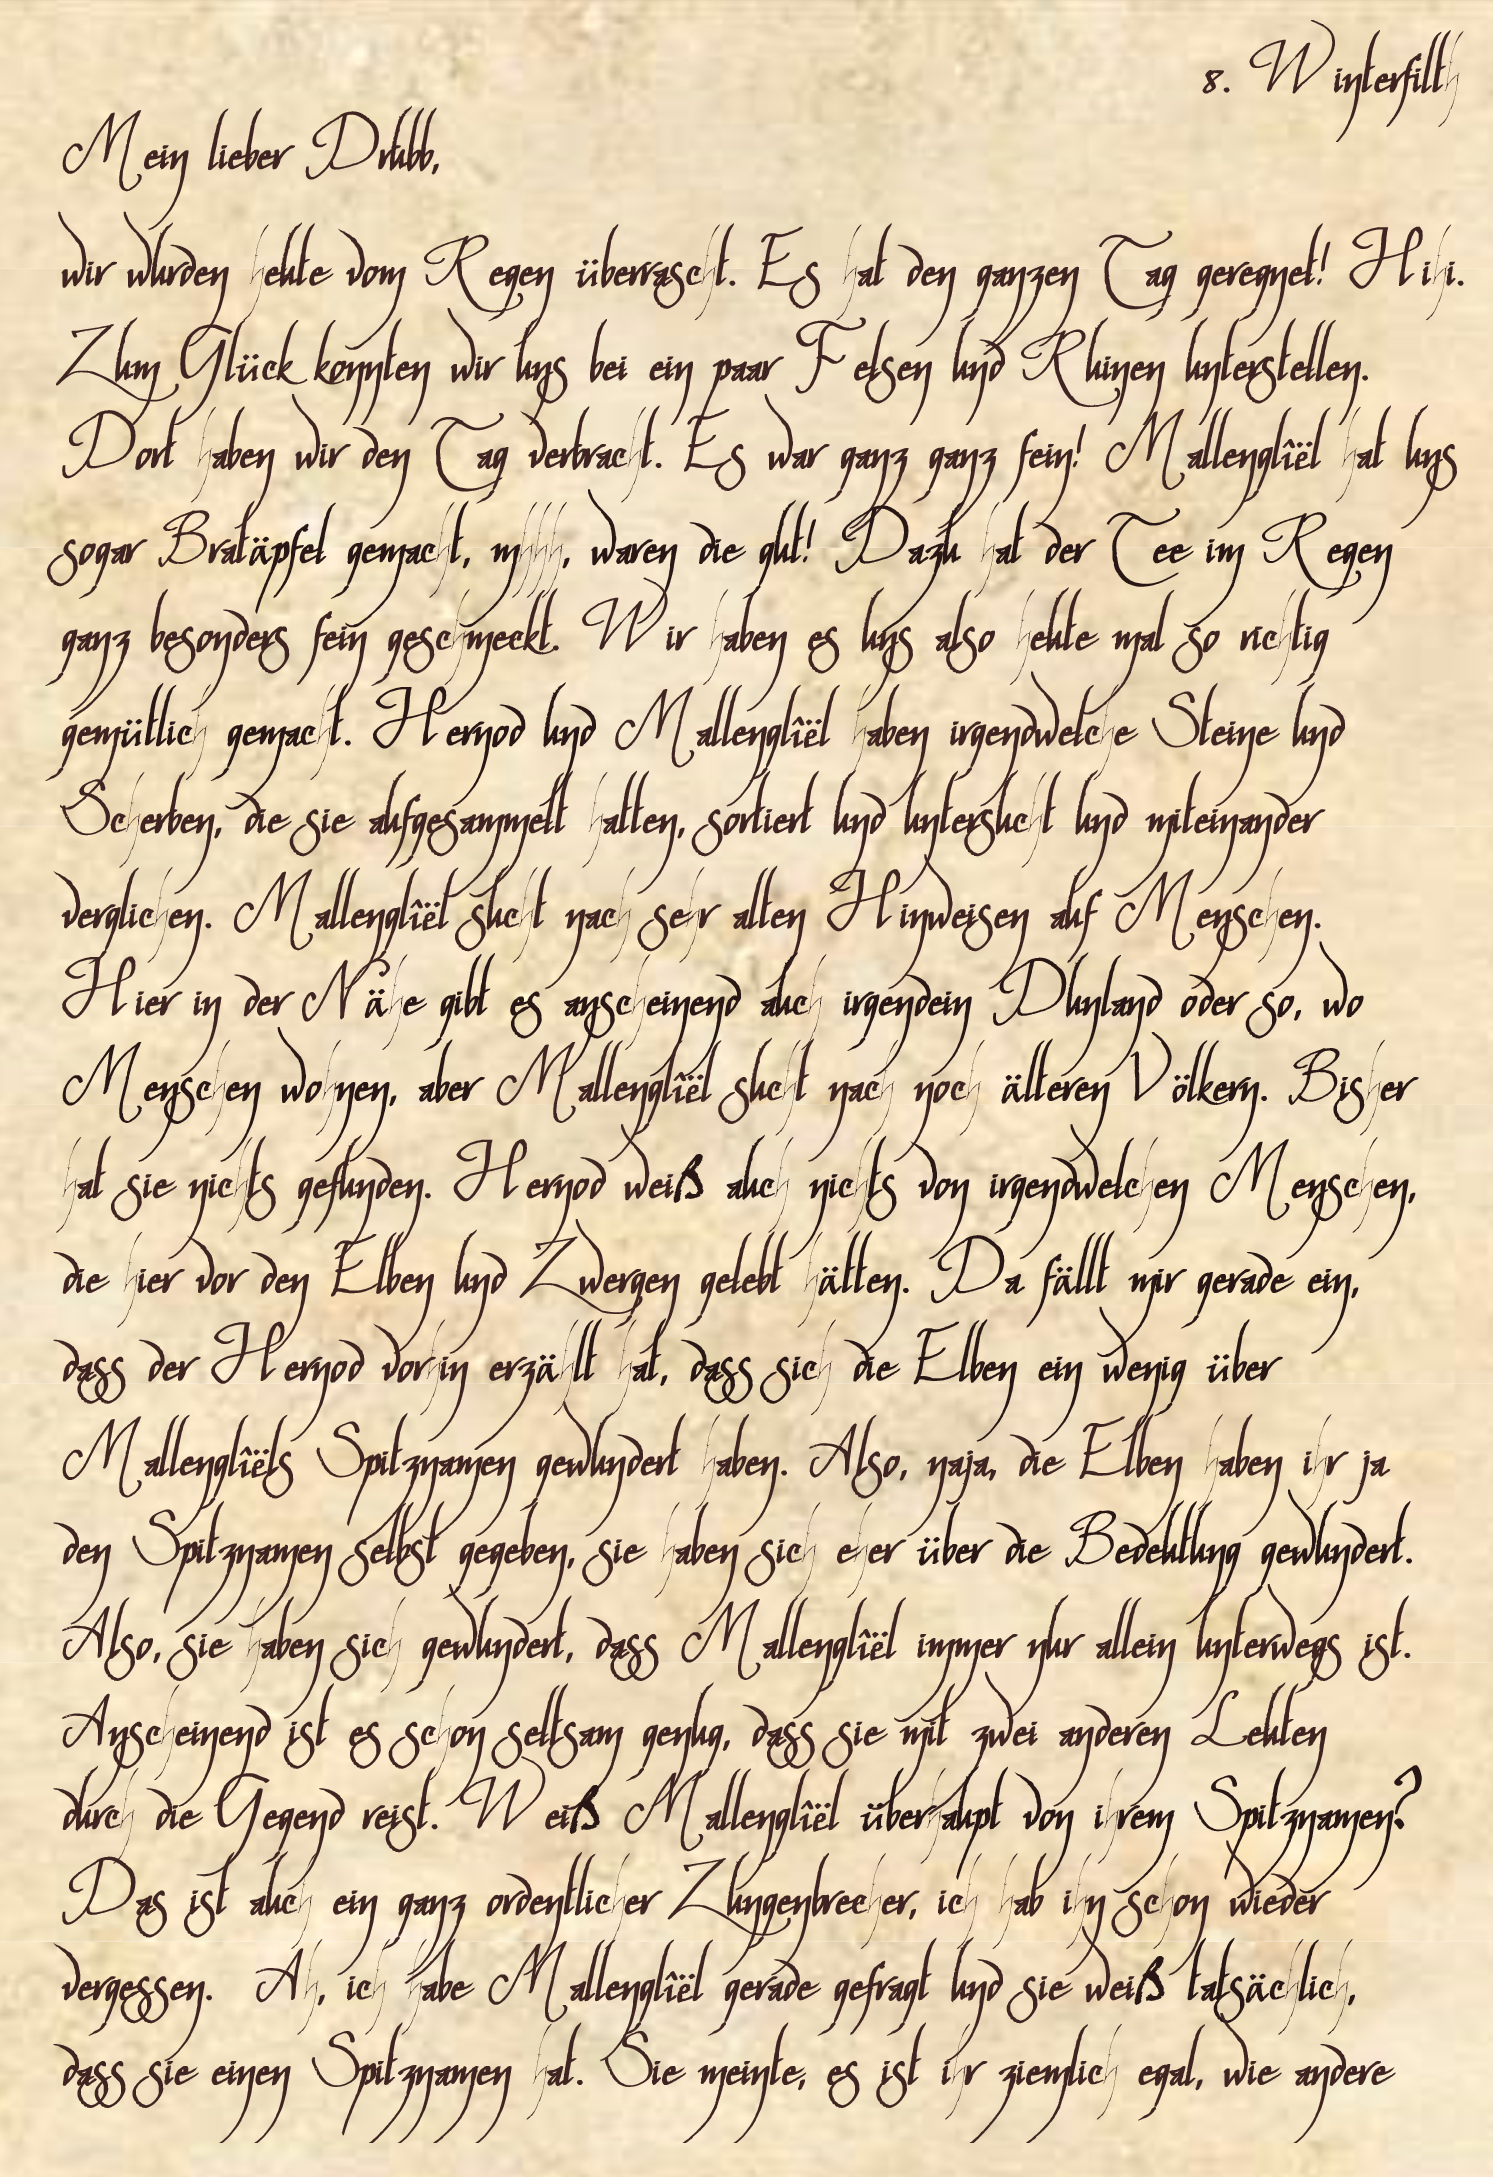 8. Winterfilth
Mein lieber Drubb,
wir wurden heute vom Regen überrascht. Es hat den ganzen Tag geregnet! Hihi.
Zum Glück konnten wir uns bei ein paar Felsen und Ruinen unterstellen.
Dort haben wir den Tag verbracht. Es war ganz ganz fein! Mallenglîël hat uns
sogar Bratäpfel gemacht, mhhh, waren die gut! Dazu hat der Tee im Regen
ganz besonders fein geschmeckt. Wir haben es uns also heute mal so richtig
gemütlich gemacht. Hernod und Mallenglîël haben irgendwelche Steine und
Scherben, die sie aufgesammelt hatten, sortiert und untersucht und miteinander
verglichen. Mallenglîël sucht nach sehr alten Hinweisen auf Menschen.
Hier in der Nähe gibt es anscheinend auch irgendein Dunland oder so, wo
Menschen wohnen, aber Mallenglîël sucht nach noch älteren Völkern. Bisher
hat sie nichts gefunden. Hernod weiß auch nichts von irgendwelchen Menschen,
die hier vor den Elben und Zwergen gelebt hätten. Da fällt mir gerade ein,
dass der Hernod vorhin erzählt hat, dass sich die Elben ein wenig über
Mallenglîëls Spitznamen gewundert haben. Also, naja, die Elben haben ihr ja
den Spitznamen selbst gegeben, sie haben sich eher über die Bedeutung gewundert.
Also, sie haben sich gewundert, dass Mallenglîël immer nur allein unterwegs ist.
Anscheinend ist es schon seltsam genug, dass sie mit zwei anderen Leuten
durch die Gegend reist. Weiß Mallenglîël überhaupt von ihrem Spitznamen?
Das ist auch ein ganz ordentlicher Zungenbrecher, ich hab ihn schon wieder
vergessen. Ah, ich habe Mallenglîël gerade gefragt und sie weiß tatsächlich,
dass sie einen Spitznamen hat. Sie meinte, es ist ihr ziemlich egal, wie andere